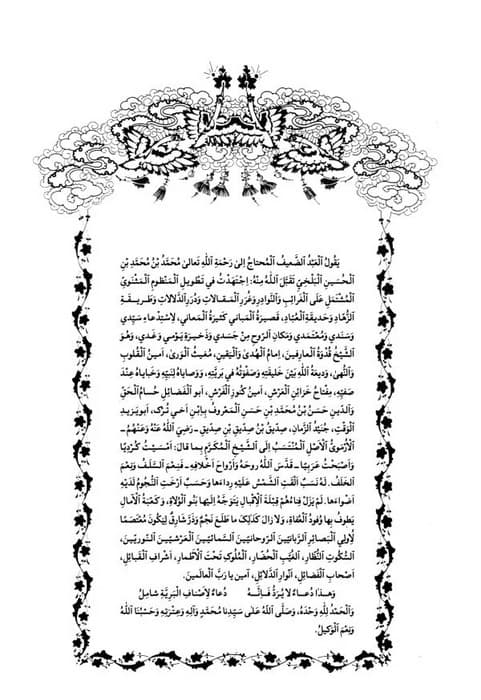 يَقُولُ ٱلْعَبْدُ ٱلضَّعِيفُ ٱلْمُحتاجُ اِلىٰ رَحْمَةِ ٱللَّهِ تَعالىٰ مُحَمَّدُ بْنُ مُحَمَّدِ بْنِ
ٱلْحُسَينِ ٱلْبَلْخِيُّ تَقَبَّلَ ٱللَّهُ مِنْهُ: اِجْتَهَدْتُ في تَطْويلِ ٱلْمَنْظُومِ ٱلْمَثْنَوِيِّ
ٱلْمُشْتَمِلِ عَلَى ٱلْغَرائِبِ وَٱلنَّوادِرِ وَغُرَرِ ٱلْمَقالاتِ وَدُرَرِ ٱلدَّلالاتِ وَطَريقَةِ
ٱلزُّهّادِ وَحَديقَةِ ٱلْعُبّادِ، قَصيرَةُ ٱلْمَباني كَثيرَةُ ٱلْمَعاني، لِاسْتِدْعاءِ سَيِّدي
وَسَنَدي وَمُعْتَمَدي وَمَكانِ ٱلرّوحِ مِنْ جَسَدي وَذَخيرَةِ يَوْمي وَغَدي، وَهُوَ
ٱلشَّيْخُ قُدْوَةُ ٱلْعارِفينَ، اِمامُ ٱلْهُدىٰ وَٱلْيَقينِ، مُغيثُ ٱلْوَرىٰ، اَمينُ ٱلْقُلوبِ
وَٱلنُّهىٰ، وَديعَةُ ٱللَّهِ بَيْنَ خَليقَتِهِ وَصَفْوَتُهُ في بَرِيَّتِهِ، وَوَصاياهُ لِنَبِيِّهِ وَخَباياهُ عِنْدَ
صَفِيِّهِ، مِفْتاحُ خَزائِنِ ٱلْعَرْشِ، اَمينُ كُنوزِ ٱلْفَرْشِ، اَبو ٱلْفَضائِلِ حُسامُ ٱلْحَقِّ
وَٱلدّينِ حَسَنُ بْنُ مُحَمَّدِ بْنِ حَسَنِ ٱلْمَعْروفُ بِابْنِ اَخي تُرْك، اَبويَزيدِ
ٱلْوَقْتِ، جُنَيْدُ ٱلزَّمانِ، صِدّيقُ بْنُ صِدّيقِ بْنِ صِدّيقٍ ـ رَضِيَ ٱللَّهُ عَنْهُ وَعَنْهُمْ ـ
ٱلْاُرْمَوِيُّ ٱلْاَصْلِ ٱلْمُنْتَسَبُ اِلَى ٱلشَّيْخِ ٱلْمُكَرَّمِ بِما قالَ: اَمْسَيْتُ كُرْدِيًّا
وَاَصْبَحْتُ عَرَبِيًّا ـ قَدَّسَ ٱللَّهُ روحَهُ وَاَرْواحَ اَخْلافِهِ ـ فَنِعْمَ ٱلسَّلَفُ وَنِعْمَ
ٱلْخَلَفُ. لَهُ نَسَبٌ اَلْقَتِ ٱلشَّمْسُ عَلَيْهِ رِداءَها وَحَسَبٌ اَرْخَتِ ٱلنُّجومُ لَدَيْهِ
اَضْواءَها. لَمْ يَزَلْ فِناءُهُمْ قِبْلَةَ ٱلْاِقْبالِ يَتَوَجَّهُ اِلَيْها بَنو ٱلْوُلاةِ، وَكَعْبَةَ ٱلْآمالِ
يَطوفُ بِها وُفودُ ٱلْعُفاةِ، وَلا زالَ كَذٰلِكَ ما طَلَعَ نَجْمٌ وَذَرَّ شارِقٌ لِيَكونَ مُعْتَصَمًا
لِاُولِي ٱلْبَصائِرِ ٱلرَّبّانِيّينَ ٱلرّوحانِيّينَ ٱلسَّمائِيّينَ ٱلْعَرْشِيّينَ ٱلنّورِيّينَ،
ٱلسُّكوتِ ٱلنُّظّارِ، ٱلْغُيَّبِ ٱلْحُضّارِ، ٱلْمُلوكِ تَحْتَ ٱلْاَطْمارِ، اَشْرافِ ٱلْقَبائِلِ،
اَصْحابِ ٱلْفَضائِلِ، اَنْوارِ ٱلدَّلائِلِ، آمينَ يا رَبَّ ٱلْعالَمينَ.
وَهـٰذا دُعـاءٌ لا يُـرَدُّ فَـاِنَّـهُ دُعاءٌ لِاَصْنافِ ٱلْبَرِيَّةِ شامِلُ
وَٱلْحَمْدُ لِلّٰهِ وَحْدَهُ، وَصَلَّى ٱللَّهُ عَلىٰ سَيِّدِنا مُحَمَّدٍ وَآلِهِ وَعِتْرَتِهِ وَحَسْبُنَا ٱللَّهُ
وَنِعْمَ ٱلْوَكيلُ.